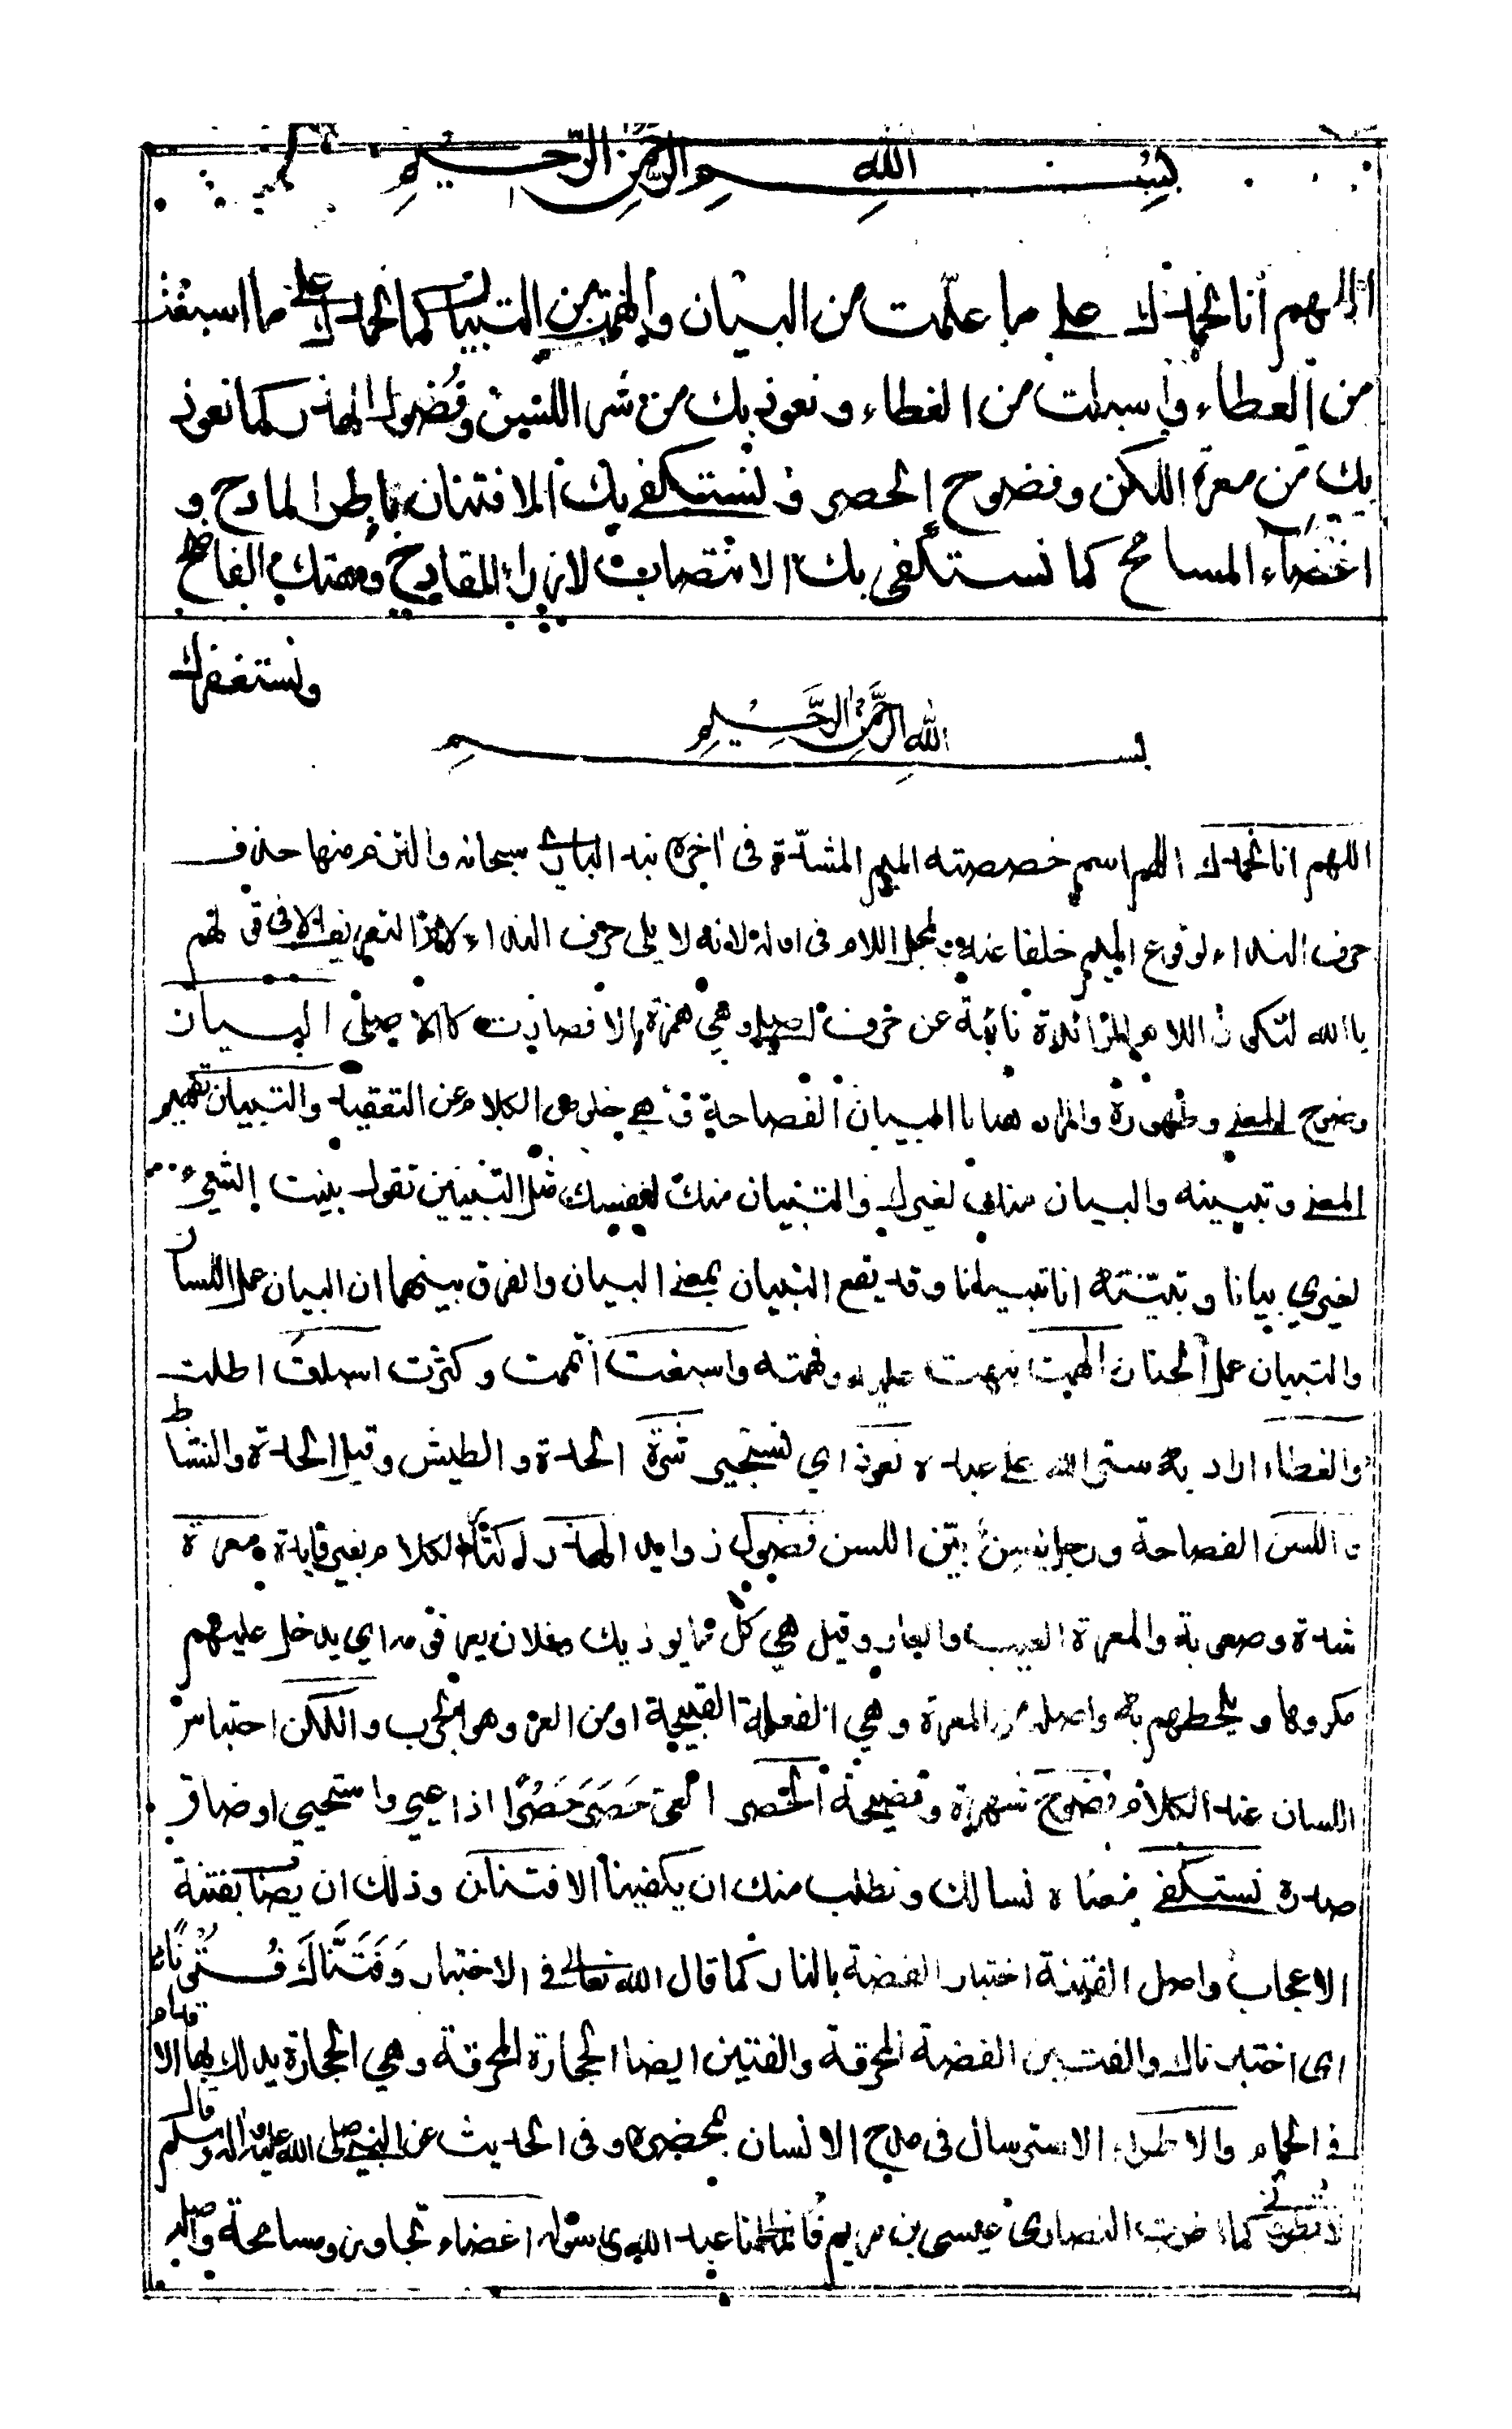 بسم الله الرحمن الرحيم
اللهم انا نحمدك على ما علمت من البيان والهمت من التبيان كما نحمدك على ما اسبغت
من العطاء واسبلت من الغطاء ونعوذ بك من شر اللسن وفضول الهذر كما نعوذ
بك من معرة اللكن وفضوح الحصر ونستكفي بك الافتتان باطراء المادح و
اغضاء المسامح كما نستكفي بك الانتصاب لازراء القادح وهتك الفاضح
ونستغفرك
بسم الله الرحمن الرحيم
اللهم انا نحمدك اللهم اسم خصصته الميم المشددة في اخره بنداء الباري سبحانه والتزم منها حذف
حرف النداء لوقوع الميم خلفا عنه اللام في اوله لانه لا يلي حرف النداء التعريف الا في قولهم
يا الله لتكون اللام الزائدة نائبة عن حرف اصلي وهي همزة فصارت كالاصلي البيان
وضوح المعنى وظهوره والمراد هنا بالبيان الفصاحة هي خلوص الكلام عن التعقيد والتبيان تفهيم
المعنى وتبيينه والبيان منك لغيرك والتبيان منك لنفسك مثل التبيين تقول بينت الشيء
لغيري بيانا وتبينته انا تبيانا وقد يقع التبيان بمعنى البيان والفرق بينهما ان البيان عمل اللسان
والتبيان عمل الجنان الهمت نبهت عليه وفهمته واسبغت اتممت وكثرت اسبلت اطلت
والغطاء اراد به ستر الله على عبده نعوذ اي نستجير شرة الحدة والطيش وقيل الحدة والنشاط
واللسن الفصاحة ورجل لسن بين اللسن فضول زوايد الهذر الكلام بغير فايدة معرة
شدة وصعوبة والمعرة العيب والعار وقيل هي كل ما يوذيك وفلان يعر قومه اي يدخل عليهم
مكروها ويلطخهم به واصله من المعرة وهي الفعلة القبيحة او من العر وهو الجرب واللكن احتباس
اللسان عند الكلام فضوح شهرة وفضيحة الحصر العي حصر حصرا اذا عيي واستحيى او ضاق
صدره نستكفي معناه نسالك ونطلب منك ان يكفينا الافتتان وذلك ان يصنا بفتنة
الاعجاب واصل الفتنة اختبار الفضة بالنار كما قال الله تعالى في الاختبار وَفَتَنَّاكَ فُتُونًا
اى اختبرناك والفتين الفضة المحرقة والفتين ايضا الحجارة المحرقة وهي الحجارة يدلك بها الاقدام
في الحمام والاطراء الاسترسال في مدح الانسان بمحضره وفي الحديث عن النبي صلى الله عليه واله وسلم قال
لا تطروني كما اطرت النصارى عيسى بن مريم فانما انا عبد الله ورسوله اغضاء تجاوز ومسامحة واصله